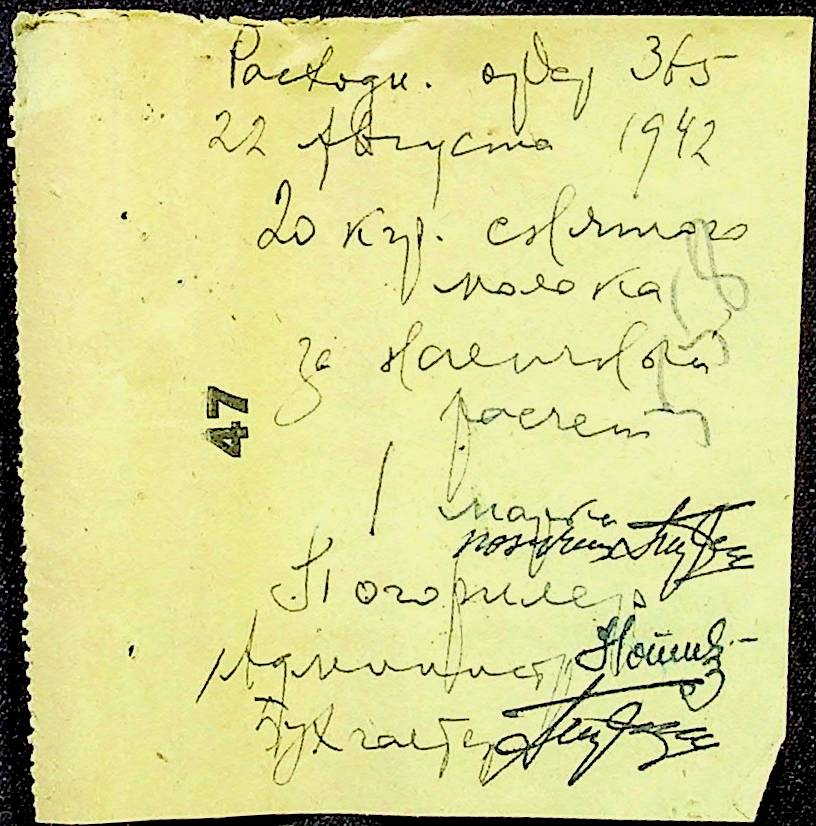 Расходн. ордер 365
22 Августа 1942
20 кгр. снятого
молока
За наличный
расчет
47
1 марка
получил
Погорилер
Администр
Бухгалтер